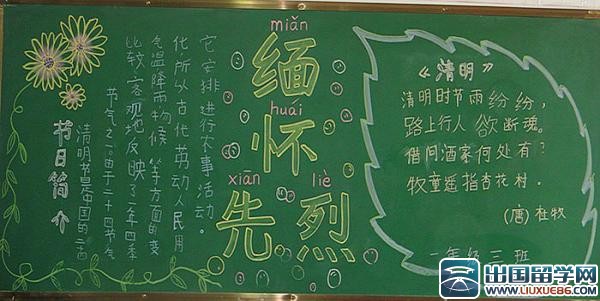 节日简介
清明节是中国的二
节气之一由于二十四节气
比较客观地反映了一年四季
气温降雨物候等方面的变
化所以古代劳动人民用
它安排进行农事活动。
miǎn
缅
huái
怀
xiān liè
先烈
《清明》
清明时节雨纷纷，
路上行人欲断魂。
借问酒家何处有？
牧童遥指杏花村。
(唐)杜牧
一年级三班
出国留学网
WWW.LIUXUE86.COM